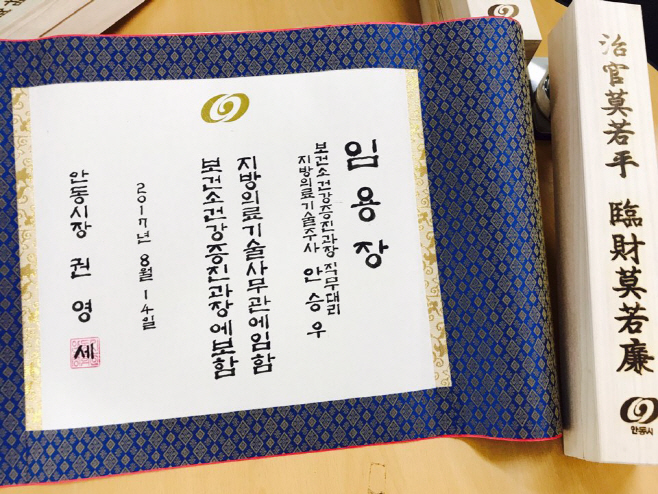 임용장
보건소건강증진과장 직무대리
지방의료기술주사 안승우
지방의료기술사무관에임함
보건소건강증진과장에보함
2017년 8월 14일
안동시장 권영
세
治官莫若平 臨財莫若廉
안동시